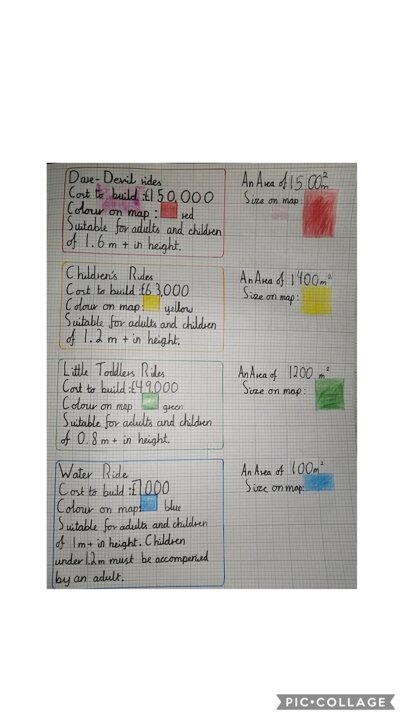 Dare-Devil rides
Cost to build :£150,000
Colour on map : red
Suitable for adults and children
of 1.6 m + in height.
An Area of 1500m²
Size on map:
Children's Rides
Cost to build £63,000
Colour on map: yellow
Suitable for adults and children
of 1.2 m + in height.
An Area of 1400m²
Size on map:
Little Toddlers Rides
Cost to build :£49,000
Colour on map green
Suitable for adults and children
of 0.8 m + in height.
An Area of 1200 m²
Size on map:
Water Ride
Cost to build :£7,000
Colour on map: blue
Suitable for adults and children
of 1m + in height. Children
under 1.2m must be accompenied
by an adult.
An Area of 100m²
Size on map:
PIC•COLLAGE